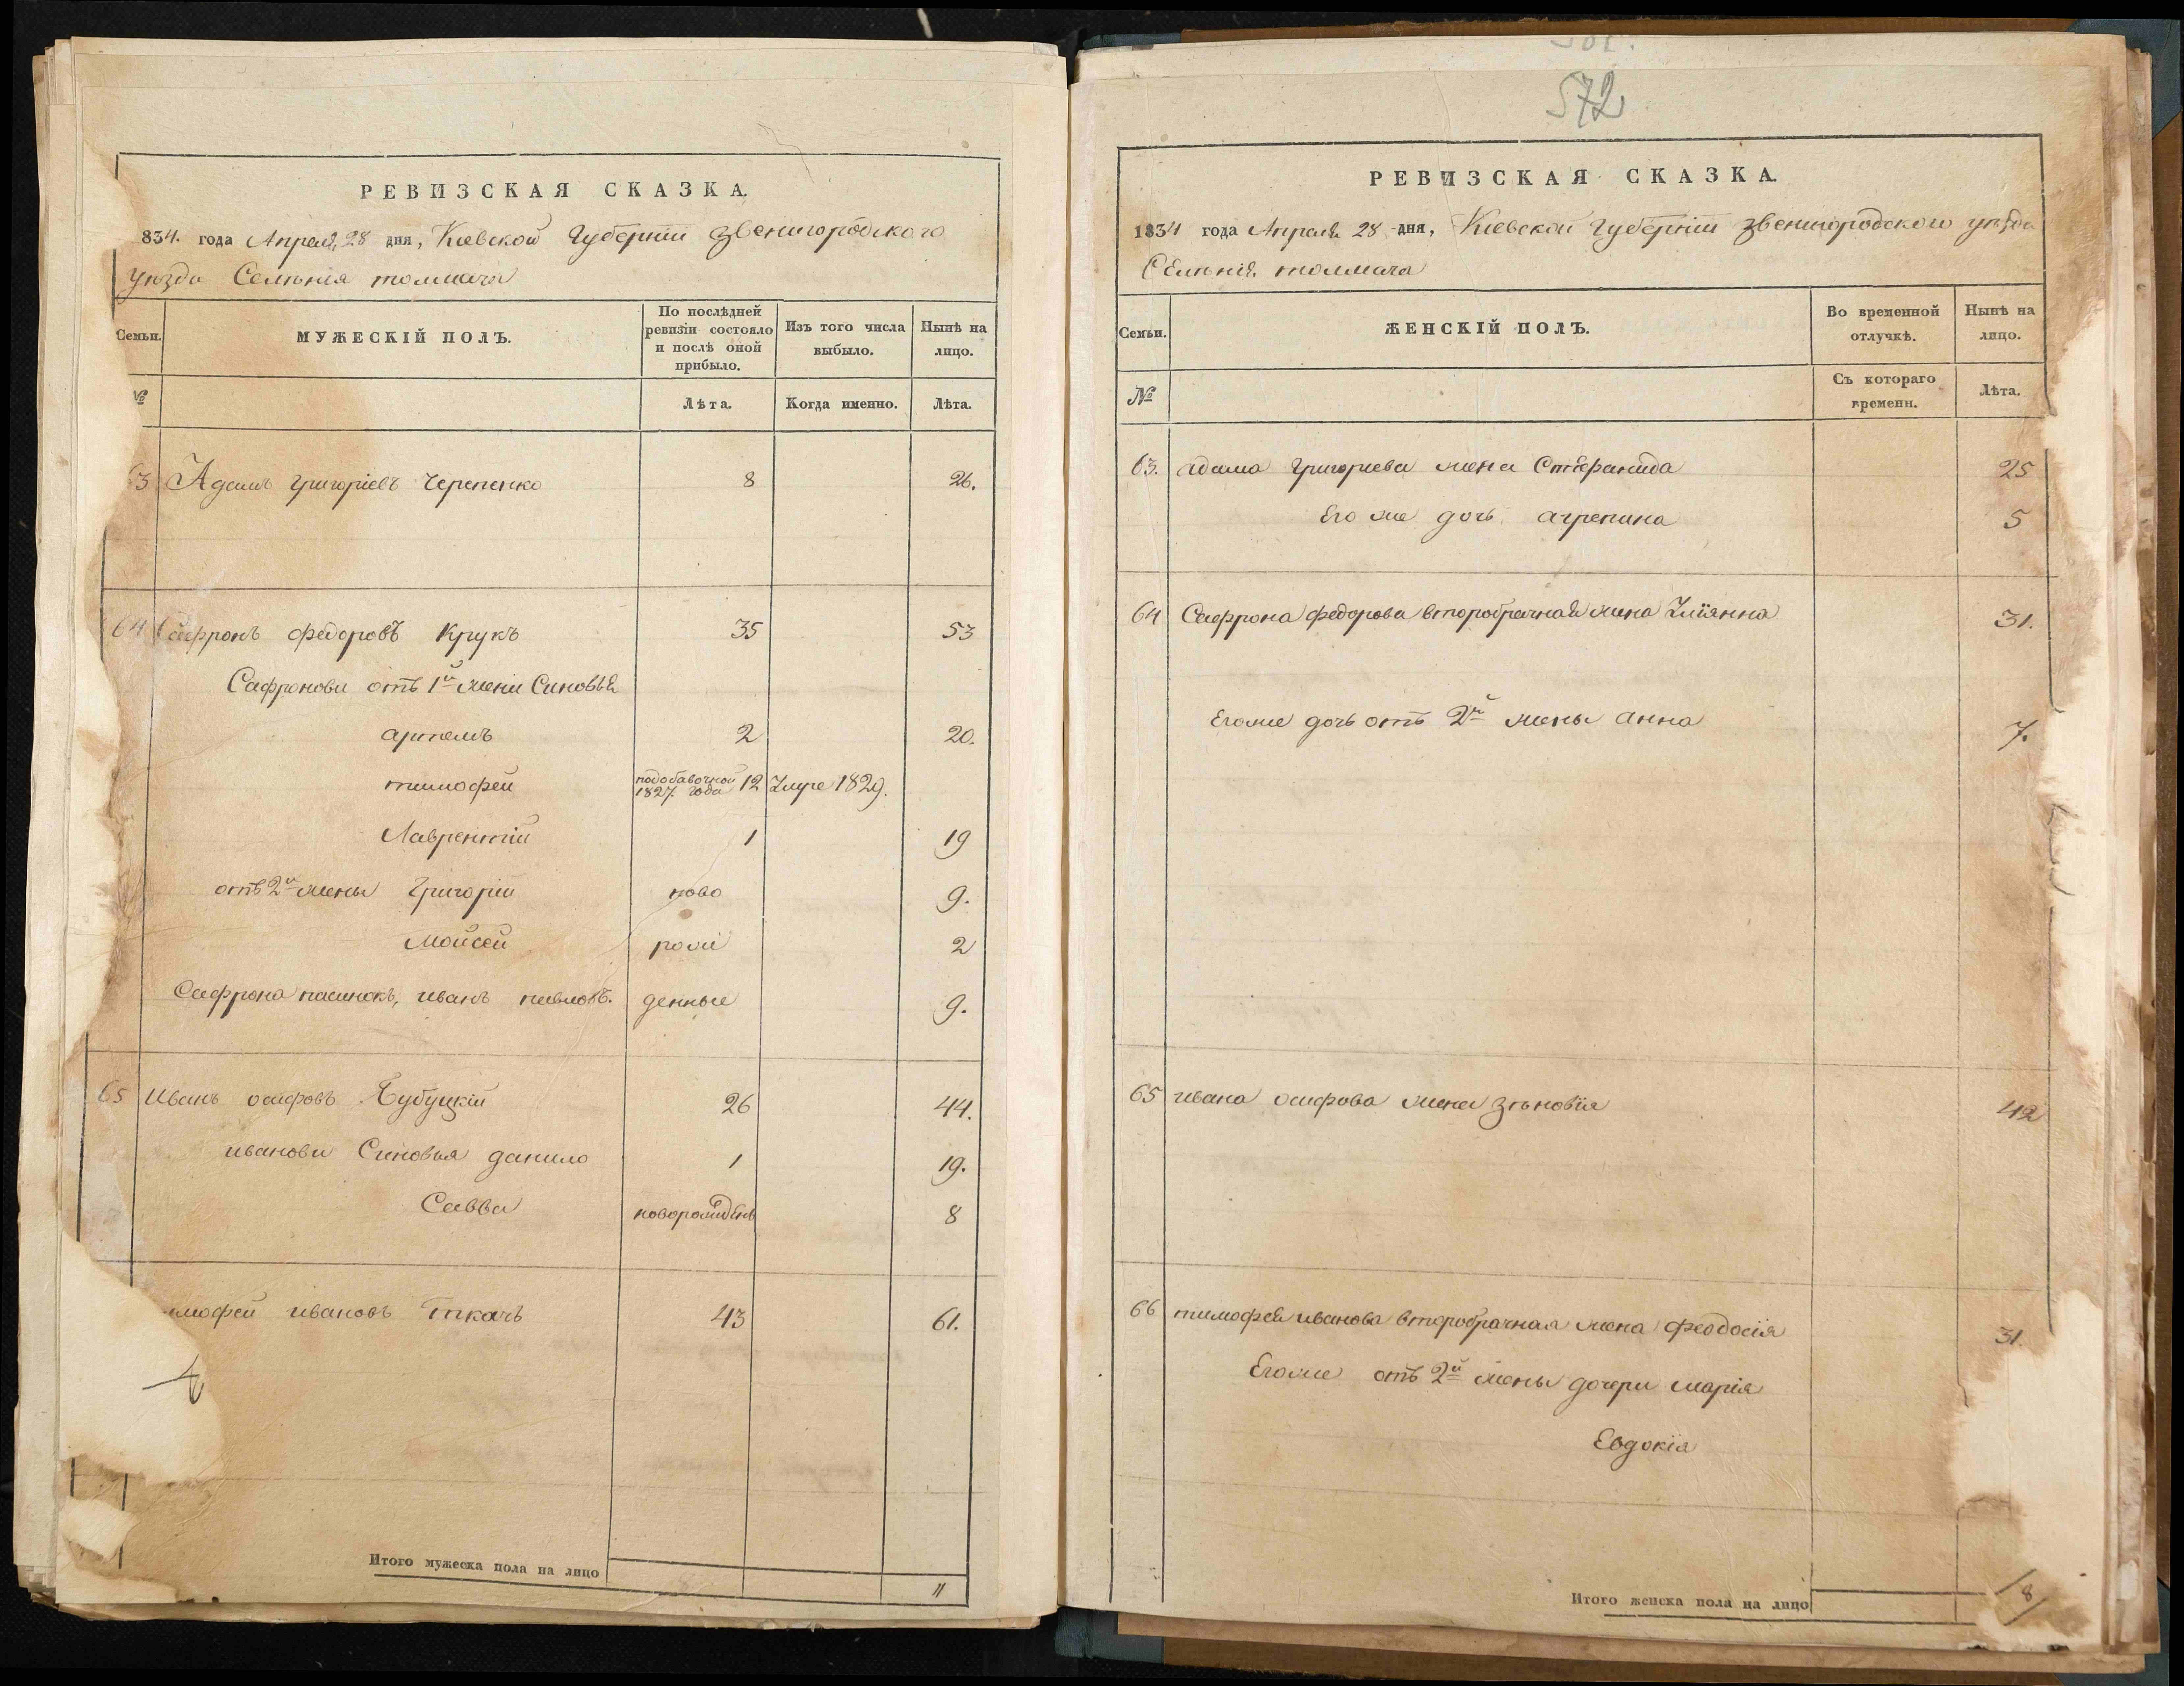 РЕВИЗСКАЯ СКАЗКА.
834. года Апреля 28 дня, Киевской Губернiи Звенигородского
уезда Селенiя толмача
Семьи.
МУЖЕСКІЙ ПОЛЪ.
По послѣдней ревизіи состояло и послѣ оной прибыло.
Изъ того числа выбыло.
Нынѣ на лицо.
№
Лѣта.
Когда именно.
Лѣта.
63 Адамъ Григорiевъ Черепенко 8 26.
64 Сафронъ Федоровъ Крукъ 35 53
Сафронови отъ 1й жени Синовья
артемъ 2 20.
тимофей подобавочной 1827. года 12 Умре 1829.
Лаврентiй 1 19
отъ 2й жены Григорiй ново 9.
Мойсей рожi 2
Сафрона пасинокъ, иванъ павловъ. денные 9.
65 Иванъ осифовъ 26 44.
иванови Синовья данило 1 19.
Савва новорожденъ 8
мофей ивановъ Ткачъ 43 61.
Итого мужеска пола на лицо 11
572
РЕВИЗСКАЯ СКАЗКА.
1834 года Апреля 28 дня, Киевской Губернiи Звенигородского уезда
Селенiя толмача
Семьи.
ЖЕНСКІЙ ПОЛЪ.
Во временной отлучкѣ.
Нынѣ на лицо.
№
Съ котораго времени.
Лѣта.
63. адама Григориева жена Стефанида 25
Его же дочь агрепина 5
64 Сафрона федорова второбрачная жена Улiянна 31.
Егоже дочь отъ 2й жены анна 7.
65 ивана осифова жена зѣновiя 42
66 тимофея иванова второбрачная жена феодосiя 31.
Егоже отъ 2й жены дочери марiя
Евдокiя
Итого женска пола на лицо 8